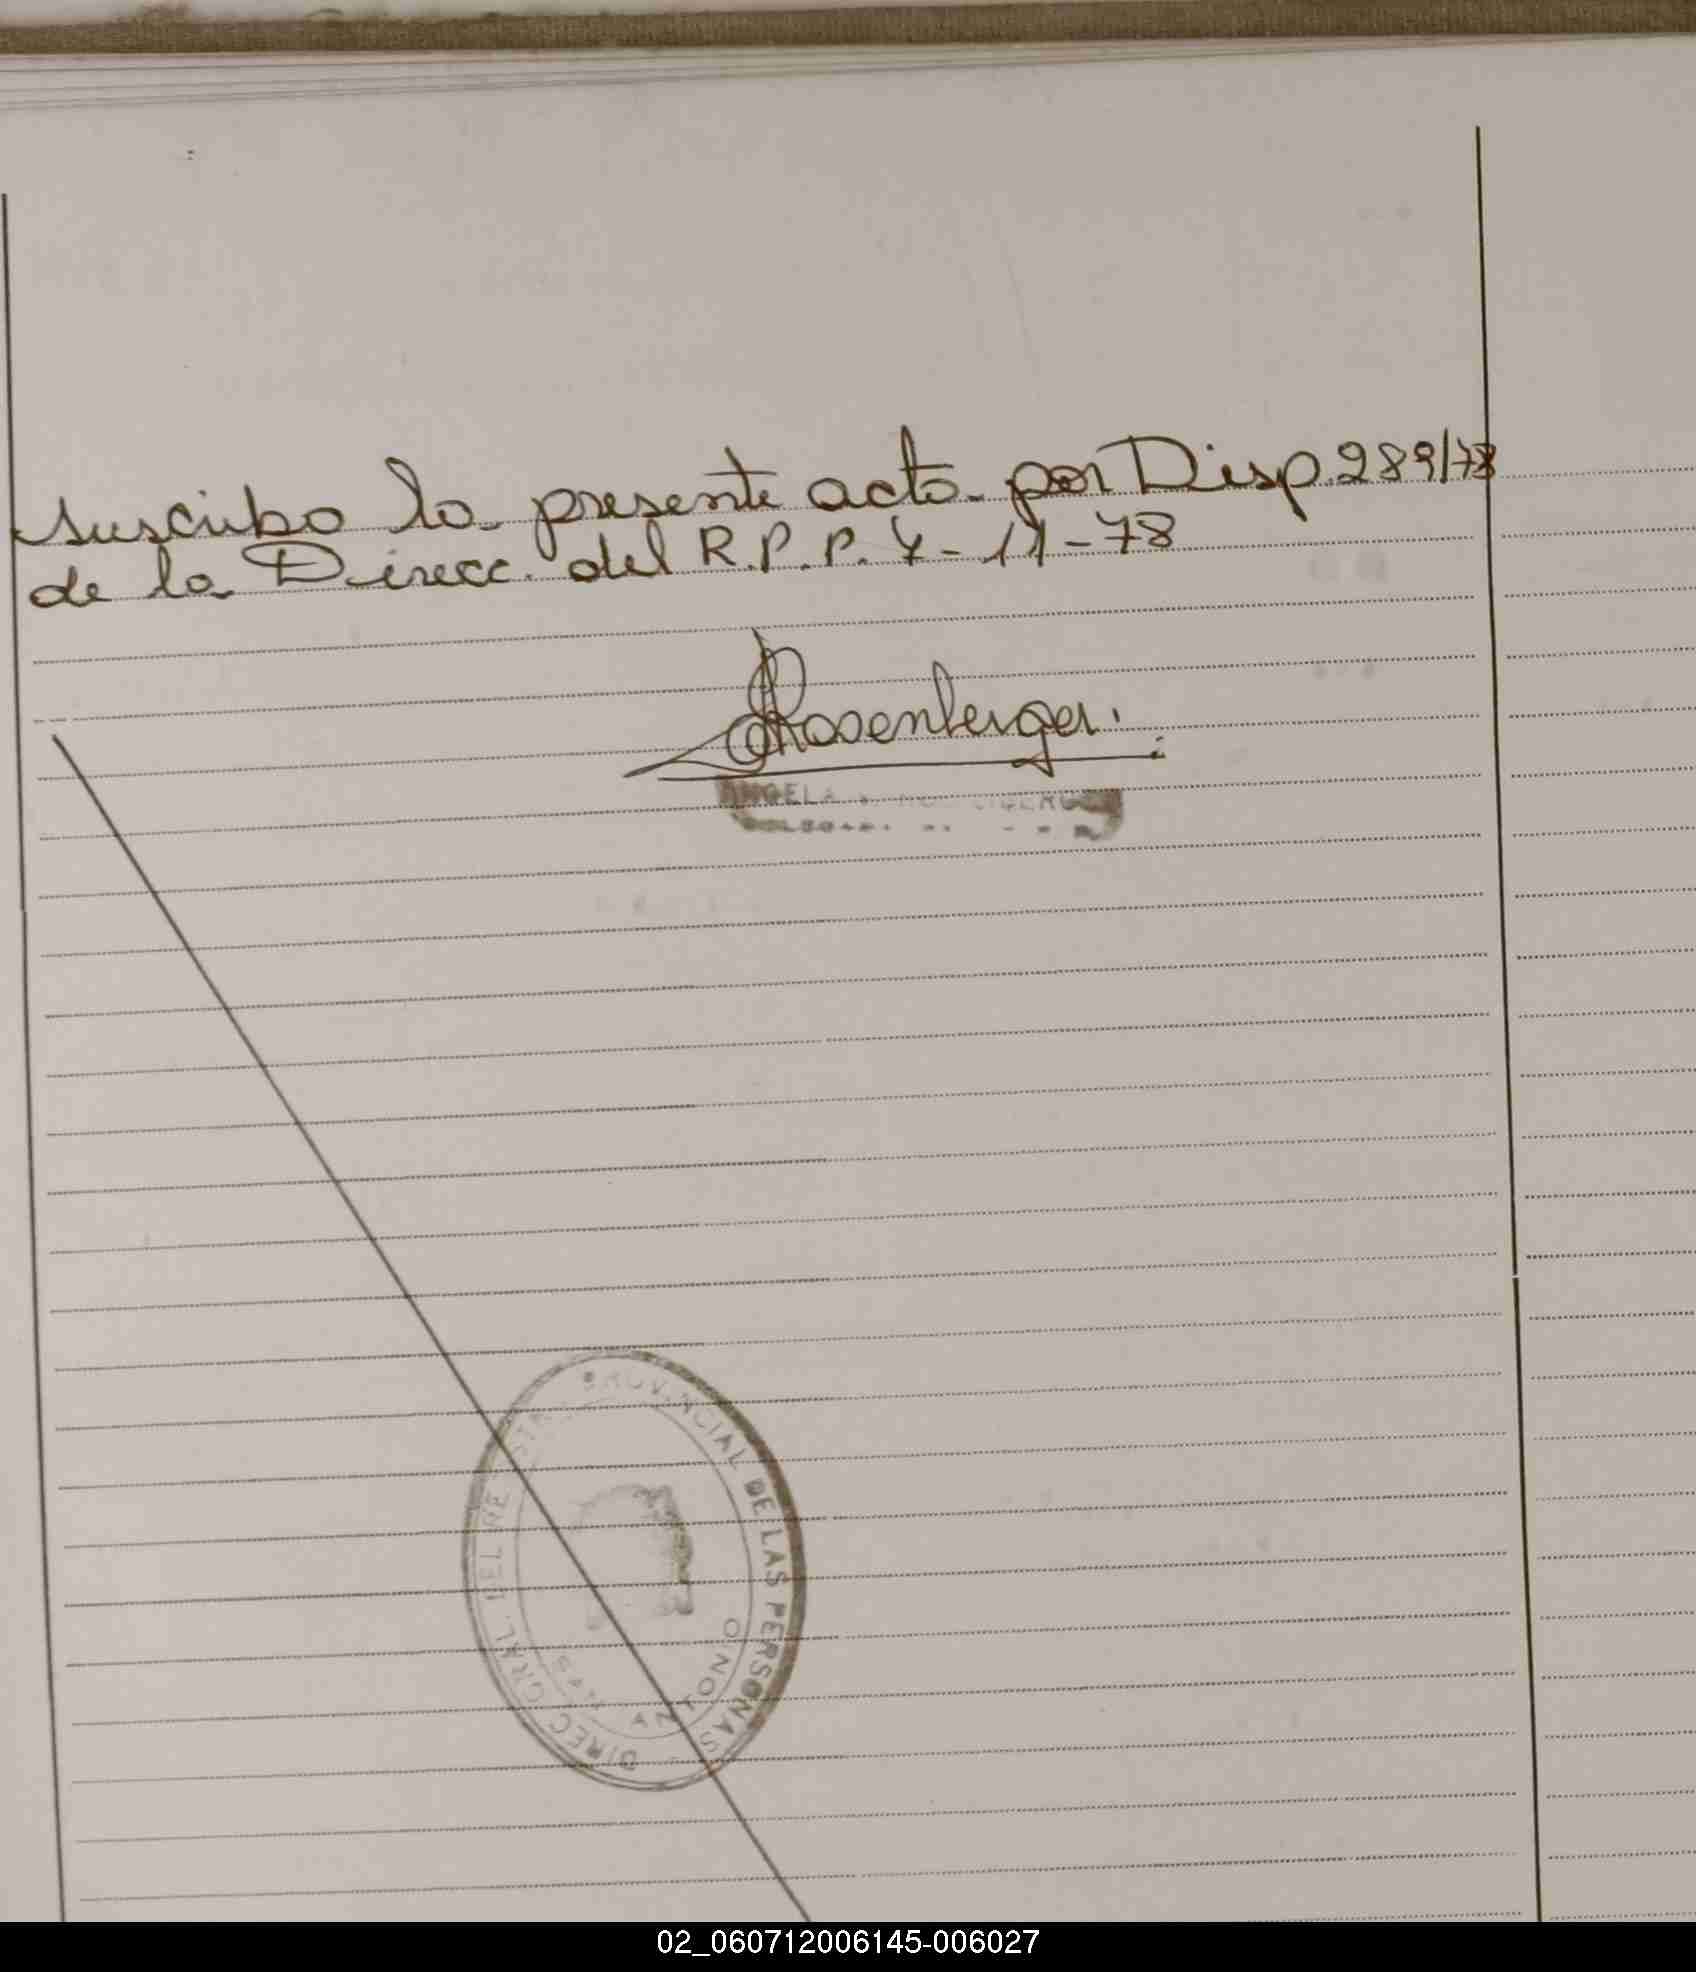 suscribo la presente acta por Disp. 289/78
de la Direcc. del R.P.P. 7-11-78
Rosenberger.
ANGELA
DIREC. GRAL. DEL RE PROVINCIAL DE LAS PERSONAS
ANTONIO
02_060712006145-006027